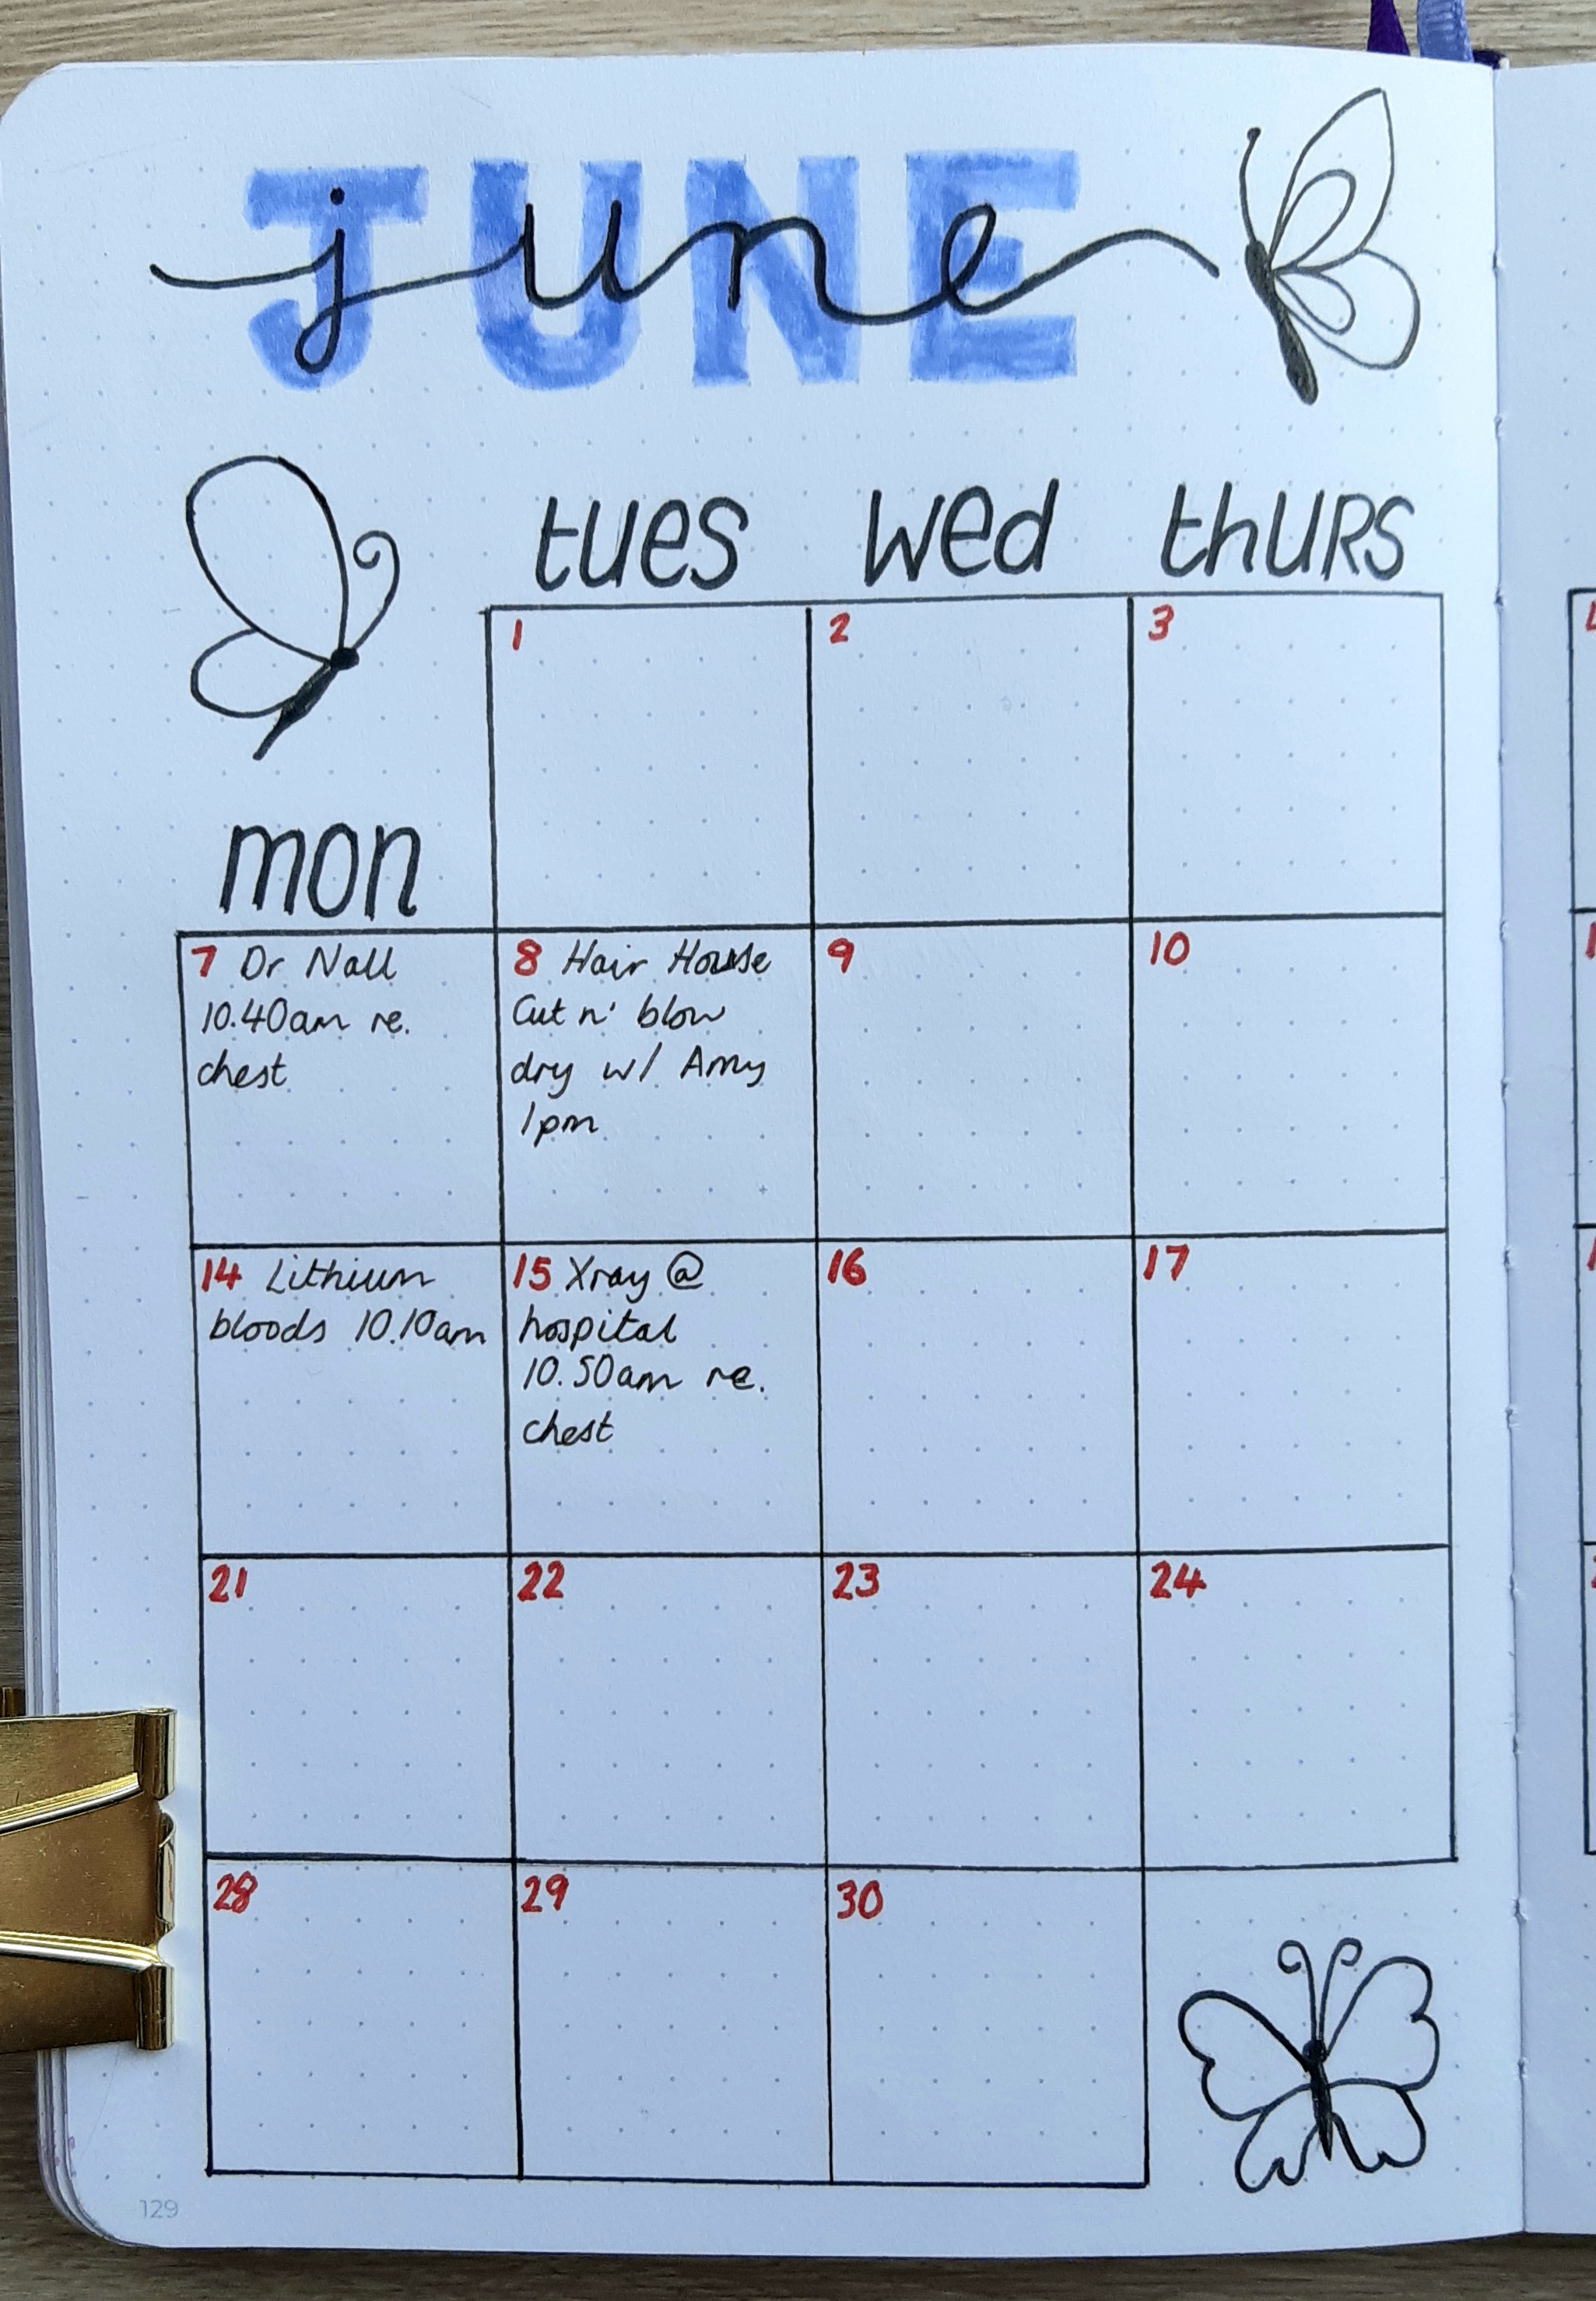 JUNE
june
tues wed thURS
1 2 3
mon
7 Dr Nall
10.40am re.
chest
8 Hair House
Cut n' blow
dry w/ Amy
1pm
9
10
14 Lithium
bloods 10.10am
15 Xray @
hospital
10.50am re.
chest
16
17
21 22 23 24
28 29 30
129